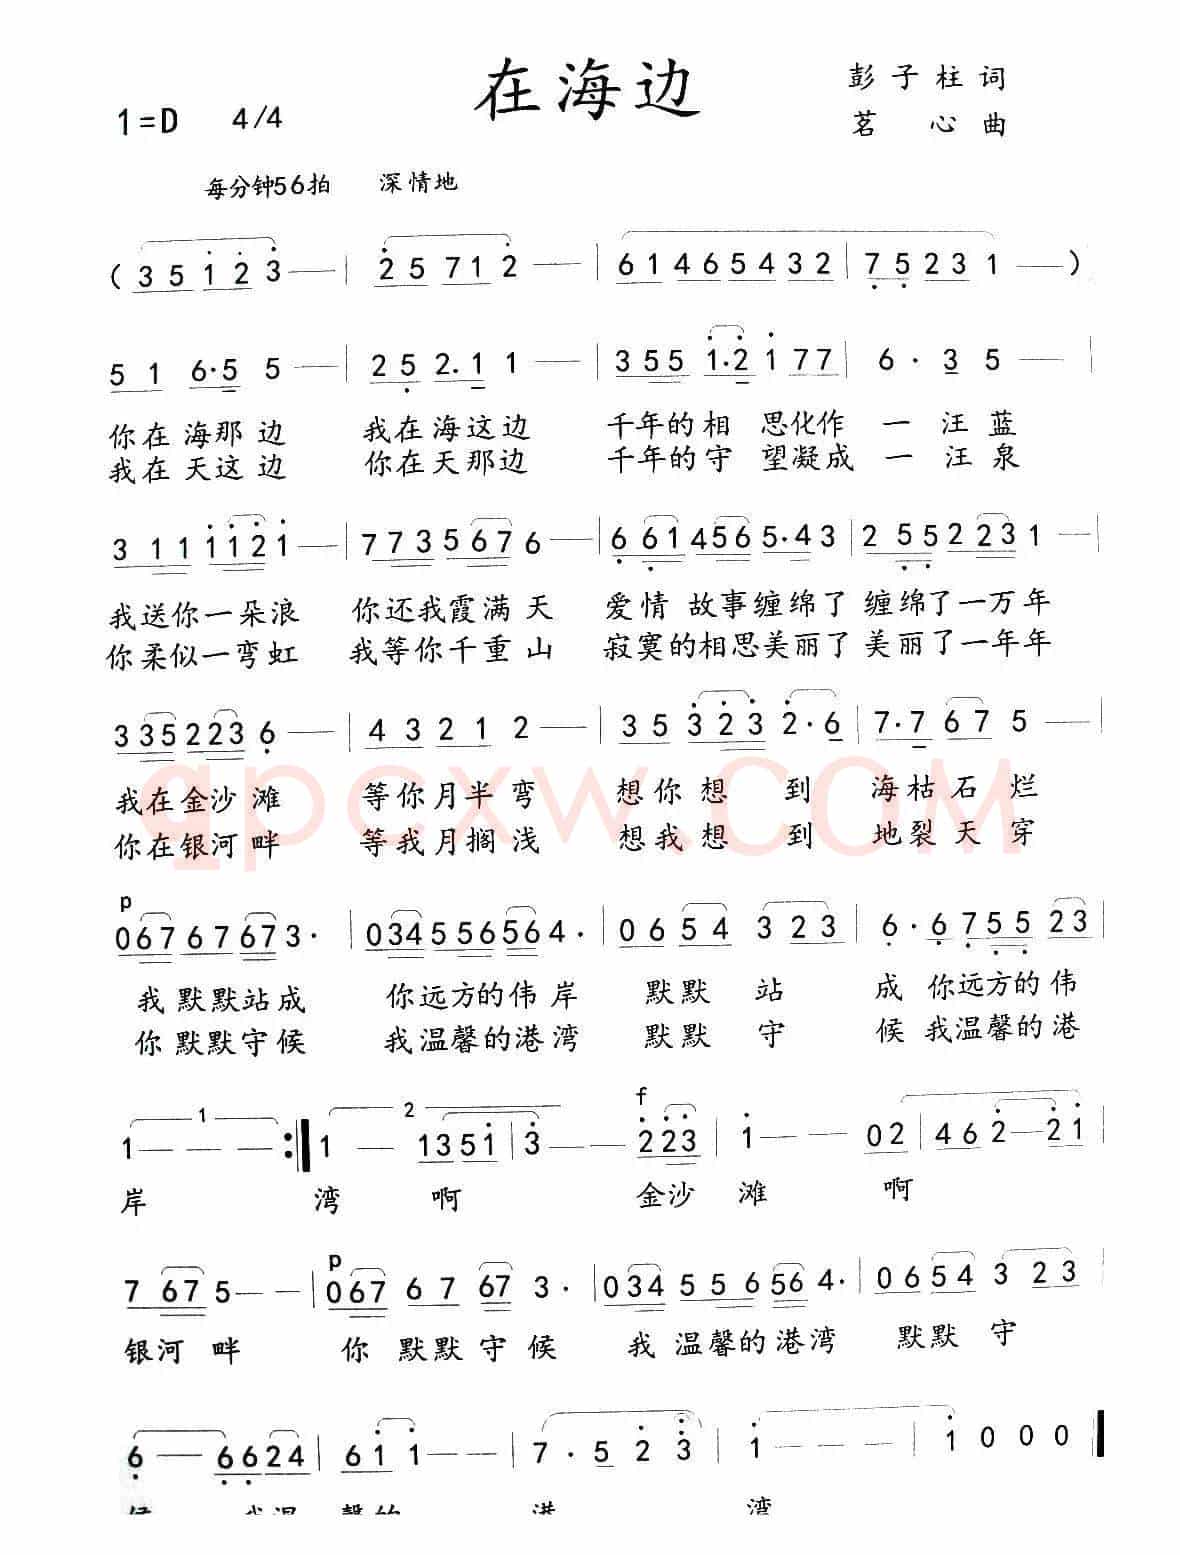 在海边
彭子柱 词
1=D 4/4
茗 心 曲
每分钟56拍 深情地
( 3 5 1 2 3 — | 2 5 7 1 2 — | 6 1 4 6 5 4 3 2 | 7 5 2 3 1 — )
5 1 6·5 5 — | 2 5 2. 1 1 — | 3 5 5 1·2 1 7 7 | 6 · 3 5 — |
你在海那边 我在海这边 千年的相 思化作 一 汪 蓝
我在天这边 你在天那边 千年的守 望凝成 一 汪 泉
3 1 1 1 1 2 1 — | 7 7 3 5 6 7 6 — | 6 6 1 4 5 6 5·4 3 | 2 5 5 2 2 3 1 — |
我送你一朵浪 你还我霞满天 爱情 故事缠绵了 缠绵了一万年
你柔似一弯虹 我等你千重山 寂寞的相思美丽了 美丽了一年年
3 3 5 2 2 3 6 — | 4 3 2 1 2 — | 3 5 3 2 3 2·6 | 7·7 6 7 5 — |
我在金沙滩 等你月半弯 想你想 到 海枯石烂
你在银河畔 等我月搁浅 想我想 到 地裂天穿
p
0 6 7 6 7 6 7 3 · | 0 3 4 5 5 6 5 6 4 · | 0 6 5 4 3 2 3 | 6 · 6 7 5 5 2 3 |
我默默站成 你远方的伟岸 默默 站 成 你远方的伟
你默默守候 我温馨的港湾 默默 守 候 我温馨的港
1 2 f
1 — — — :| 1 — 1 3 5 1 | 3 — 2 2 3 | 1 — — 0 2 | 4 6 2 — 2 1 |
岸 湾 啊 金沙 滩 啊
p
7 6 7 5 — — | 0 6 7 6 7 6 7 3 · | 0 3 4 5 5 6 5 6 4 · | 0 6 5 4 3 2 3 |
银河 畔 你 默默守候 我 温馨的港湾 默默 守
6 — 6 6 2 4 | 6 1 1 — — | 7 · 5 2 3 | 1 — — — | 1 0 0 0
候 我温 馨的 港 湾
qpcxw.COM